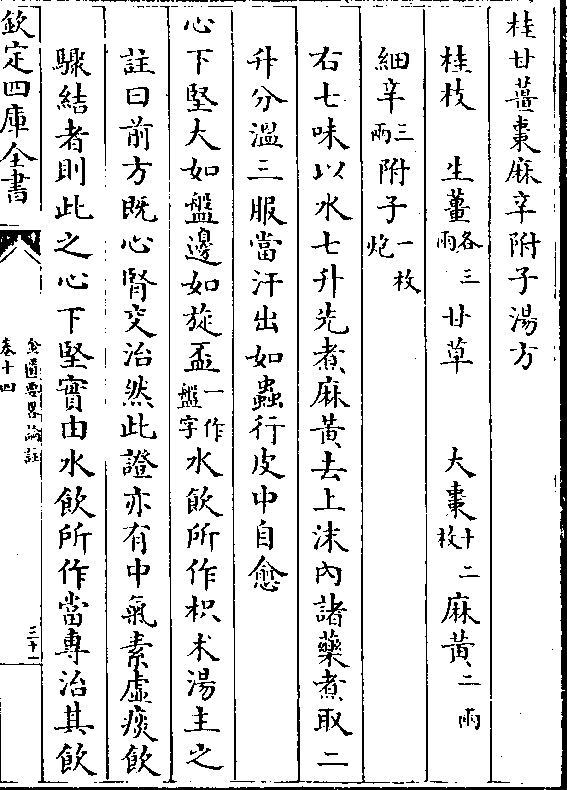 桂甘薑棗麻辛附子湯方
桂枝　生薑各三兩　甘草　大棗十二枚　麻黃二兩
細辛三兩　附子一枚炮
右七味以水七升先煮麻黃去上沫內諸藥煮取二
升分溫三服當汗出如蟲行皮中自愈
心下堅大如盤邊如旋盃一作盤字水飲所作枳朮湯主之
註曰前方既心腎交治然此證亦有中氣素虛痰飲
驟結者則此之心下堅實由水飲所作當專治其飲
欽定四庫全書
金匱要畧論註
卷十四
三十一